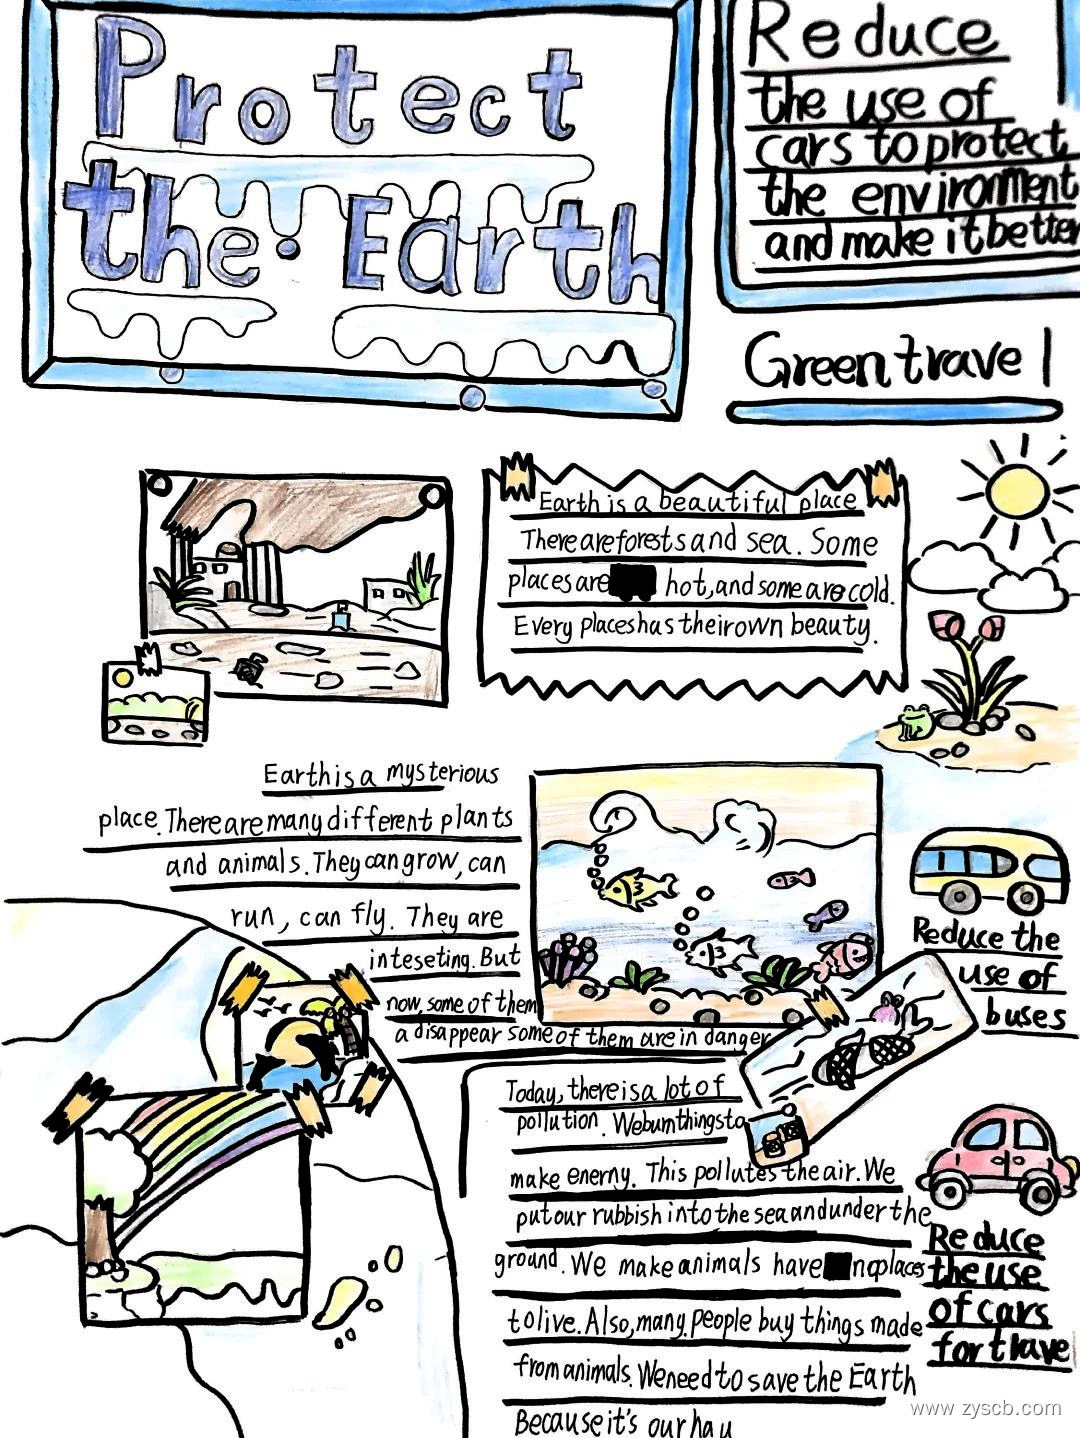 Protect
the Earth
Reduce
the use of
cars to protect
the environment
and make it better
Green travel
Earth is a beautiful place
There are forests and sea. Some
places are hot, and some are cold.
Every places has their own beauty.
Earth is a mysterious
place. There are many different plants
and animals. They can grow, can
run, can fly. They are
inteseting. But
now, some of them
a disappear some of them are in danger
Today, there is a lot of
pollution. We burn things to
make enerny. This pollutes the air. We
put our rubbish into the sea and under the
ground. We make animals have no places
to live. Also, many people buy things made
from animals. We need to save the Earth
Because it's our
Reduce the
use of
buses
Reduce
the use
of cars
for trave
www.zyscb.com